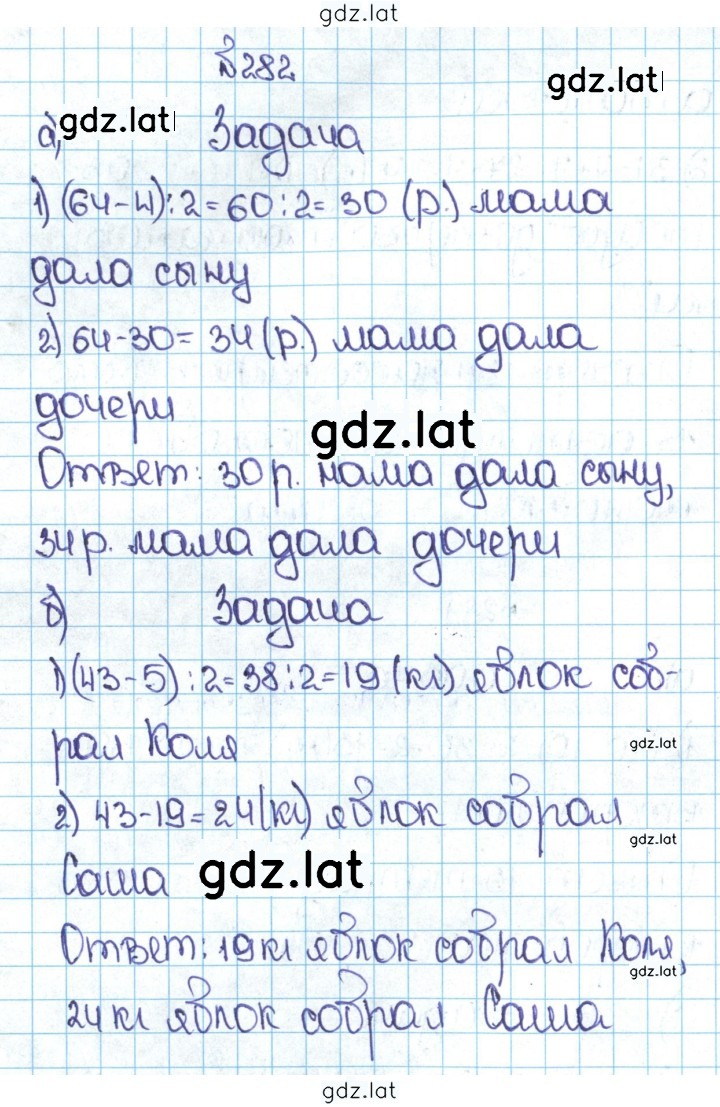 gdz.lat
№282
gdz.lat
а) gdz.lat Задача
1) (64-4):2=60:2=30 (р.) мама
дала сыну
2) 64-30=34 (р.) мама дала
дочери
gdz.lat
Ответ: 30 р. мама дала сыну,
34 р. мама дала дочери
б) Задача
1) (43-5):2=38:2=19 (кг) яблок соб-
рал Коля
gdz.lat
2) 43-19=24 (кг) яблок собрал
gdz.lat
Саша
gdz.lat
Ответ: 19 кг яблок собрал Коля,
gdz.lat
24 кг яблок собрал Саша
gdz.lat